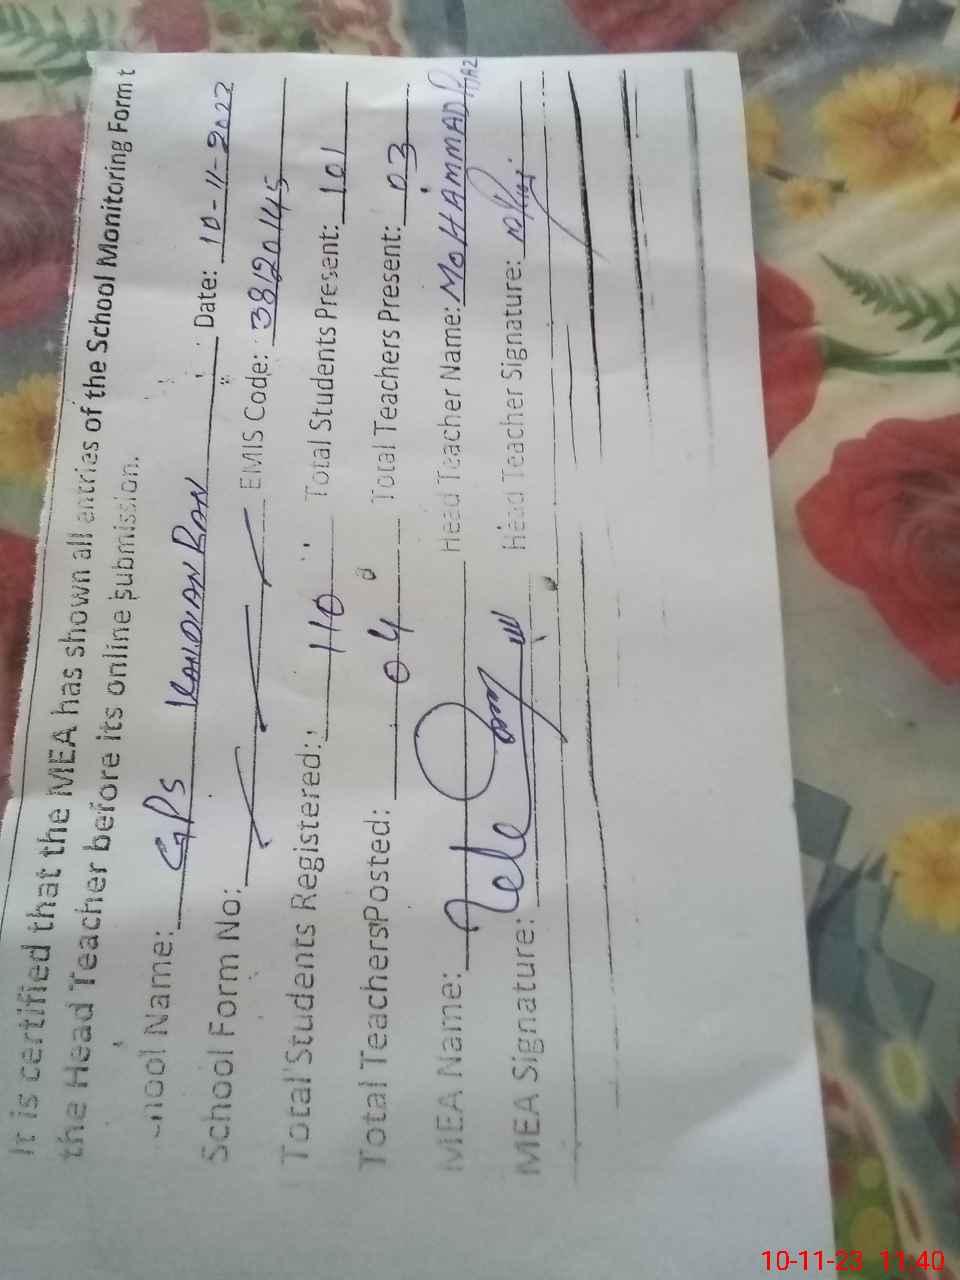 It is certified that the MEA has shown all entries of the School Monitoring Form t
the Head Teacher before its online submission.
hool Name: GPS KANDIAN BAN Date: 10-11-2023
School Form No: EMIS Code: 38120145
Total Students Registered: 110 Total Students Present: 101
Total Teachers Posted: 04 Total Teachers Present: 03
MEA Name: Head Teacher Name: MOHAMMAD
MEA Signature: Head Teacher Signature:
10-11-23 11:40